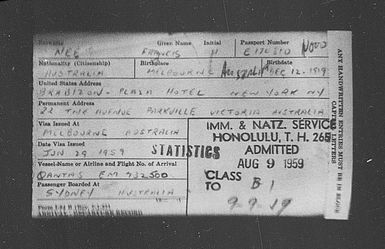 Given Name Initial Passport Number
FRANCIS
Nationality (Citizenship) Birthplace Birthdate
AUSTRALIA MELBOURNE DEC. 12. 1919
United States Address
PLAZA HOTEL NEW YORK NY
Permanent Address
22 THE AVENUE PARKVILLE VICTORIA AUSTRALIA
Visa Issued At
MELBOURNE AUSTRALIA
Date Visa Issued
JUN 29 1959
Vessel-Name or Airline and Flight No. of Arrival
QANTAS EM 732/500
Passenger Boarded At
SYDNEY AUSTRALIA
STATISTICS
IMM. & NATZ. SERVICE
HONOLULU, T. H. 265
ADMITTED
AUG 9 1959
CLASS B1
TO
ANY HANDWRITTEN ENTRIES MUST BE IN BLOCK
CAPITAL LETTERS